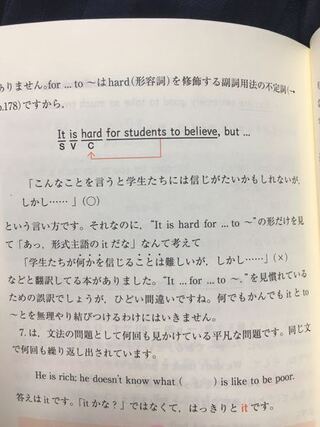 ありません。for ... to ～ は hard (形容詞) を修飾する副詞用法の不定詞 (→
p.178) ですから,
It is hard for students to believe, but ...
S V C
「こんなことを言うと学生たちには信じがたいかもしれないが,
しかし……」(○)
という言い方です。それなのに, “It is hard for ... to ～” の形だけを見
て「あっ, 形式主語の it だな」なんて考えて
「学生たちが何かを信じることは難しいが, しかし……」(×)
などと翻訳してる本がありました。“It ... for ... to ～.” を見慣れている
ための誤訳でしょうが, ひどい間違いですね。何でもかんでも it と to
～とを無理やり結びつけるわけにはいきません。
7. は, 文法の問題として何回も見かけている平凡な問題です。同じ文
で何回も繰り返し出されています。
He is rich; he doesn't know what ( ) is like to be poor.
答えは it です。「it かな?」ではなくて, はっきりと it です。